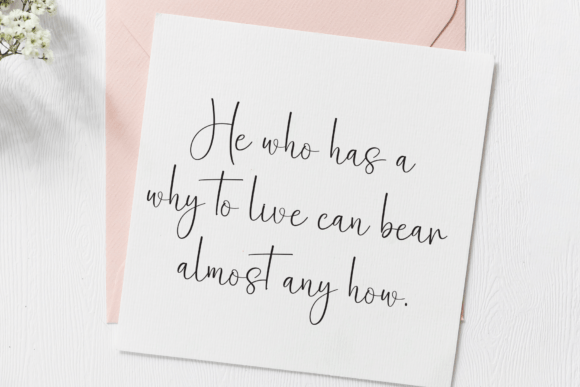 He who has a
why to live can bear
almost any how.